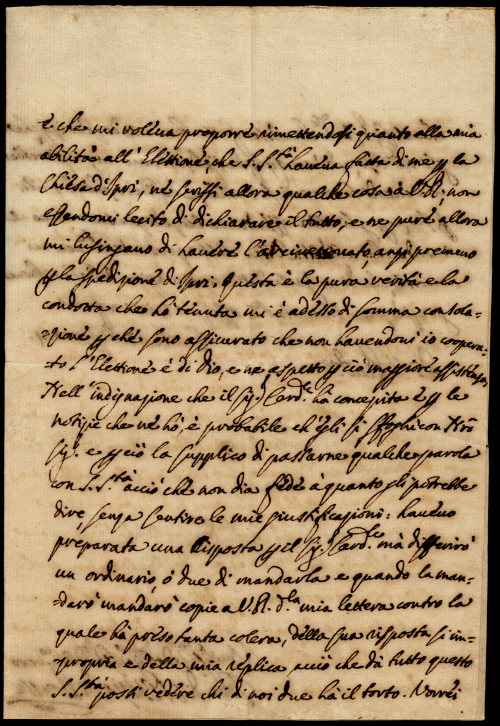 e che mi voleva proporre rimettendosi quanto alla mia
abilità all' Elettione, che S. S.tà haueua fatta di me p la
Chiesa d'Ipri, ne scrissi allora qualche cosa a V.R., non
essendomi lecito di dichiarare il tutto, e ne pure allora
mi lusingauo di hauere l'Arciuescouato, anzi premeuo
p la spedizione di Ipri. Questa è la pura verità e la
condotta che hò tenuta mi è adesso di somma consola-
zione p che sono assicurato che non hauendoui io coopera-
to l'Elettione è di Dio, e ne aspetto p ciò maggiore assistenza,
Nell' indignazione che il Sig.r Card.le hà concepita e p le
notizie che ne hò, è probabile ch'egli si sfoghi con Nrõ
Sig.re e p ciò la supplico di passarne qualche parola
con S. S.tà acciò che non dia fede à quanto gli potrebbe
dire, senza sentire le mie giustificazioni: haueuo
preparata una Risposta p il Sig.r Card.le mà differirò
un ordinario, ò due di mandarla e quando la man-
darò mandarò copie a V.R. d.la mia lettera contro la
quale hà preso tanta colera, della sua risposta si im-
propria e della mia replica acciò che dà tutto questo
S. S.tà possi vedere chi di noi due hà il torto. Vorrei